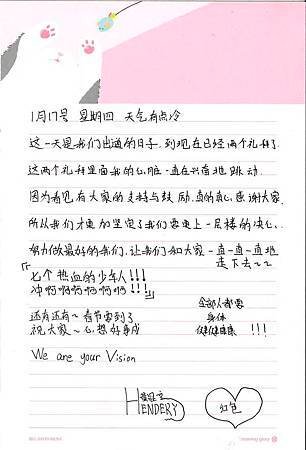 1月17号 星期四 天气有点冷
这一天是我们出道的日子,到现在已经两个礼拜了
这两个礼拜里面我的心脏一直在兴奋地跳动.
因为看见有大家的支持与鼓励.真的衷心感谢大家.
所以我们才更加坚定了我们要更上一层楼的决心.
努力做最好的我们.让我们和大家一直一直一直地
走下去~~
「七个热血的少年人!!!
冲啊啊啊啊啊啊!!!」
还有还有~春节要到了
祝大家~心想好事成
全部人都要
身体
健健康康 !!!
We are your Vision
黄冠亨
HENDERY
红包